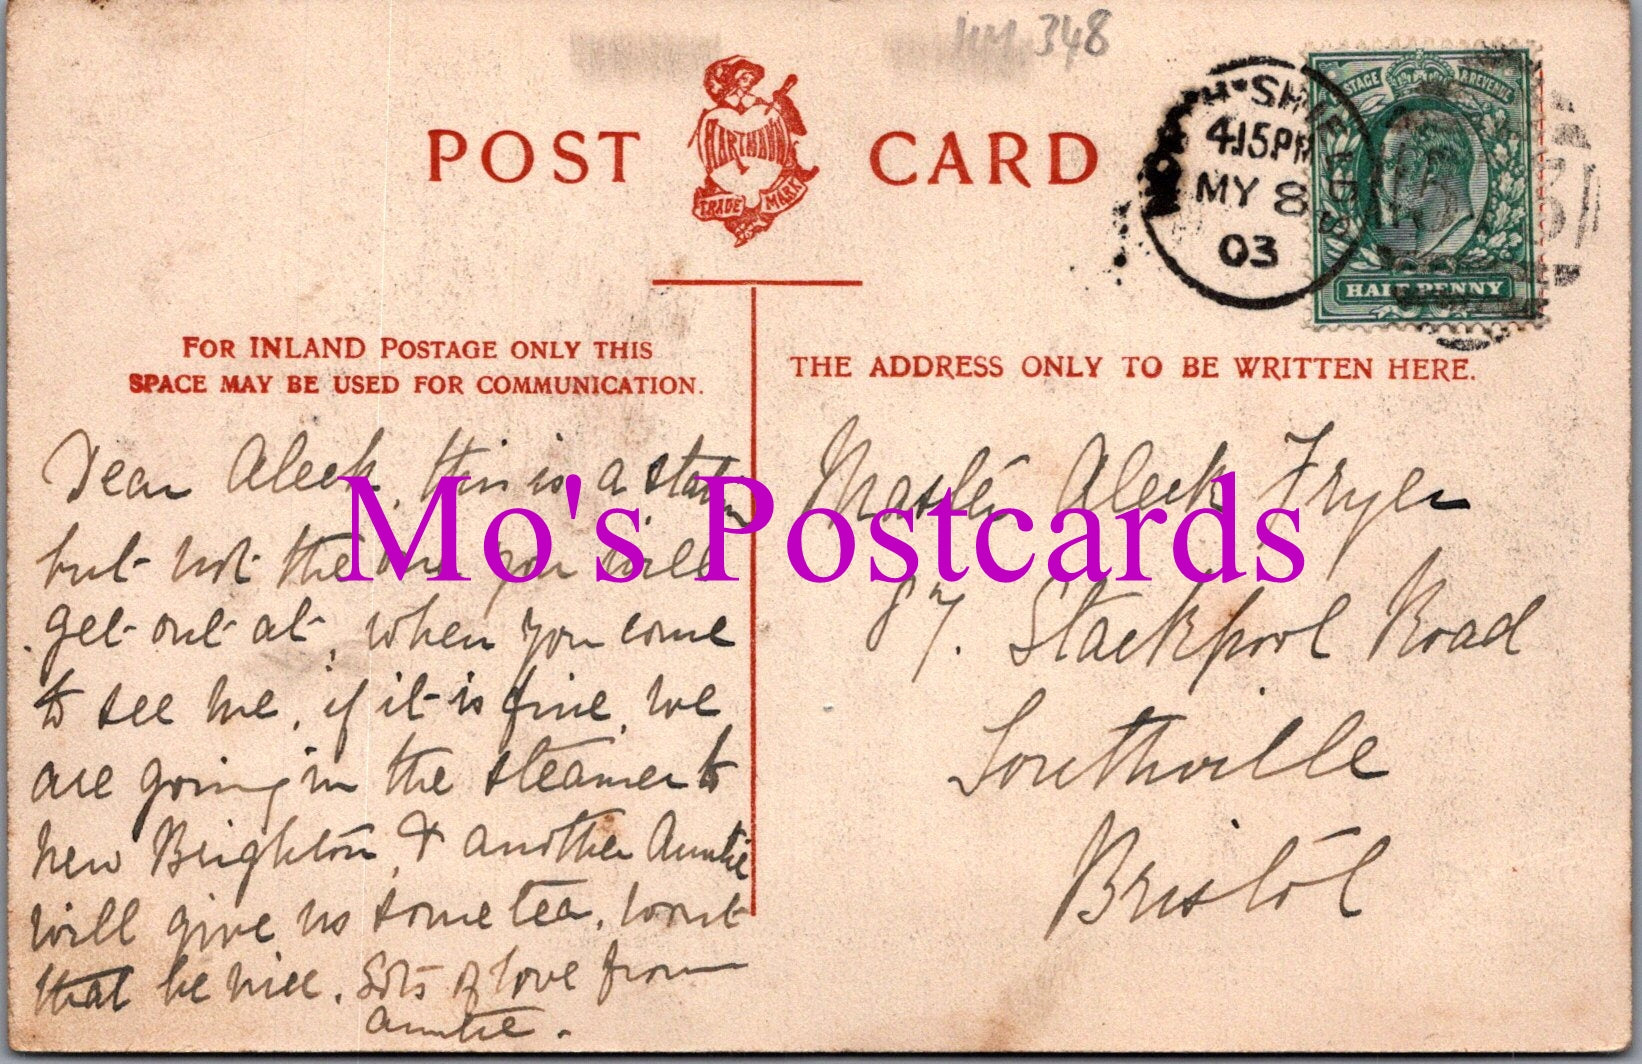 348
POST CARD
HARTMANN
TRADE MARK
NORTH SHIELDS
4.15PM
MY 8
03
POSTAGE & REVENUE
HALF PENNY
FOR INLAND POSTAGE ONLY THIS
SPACE MAY BE USED FOR COMMUNICATION.
THE ADDRESS ONLY TO BE WRITTEN HERE.
Dear Aleck, this is a station
but not the one you will
get out at, when you come
to see me, if it is fine, we
are going in the steamer to
New Brighton, & another Auntie
will give us some tea. Wont
that be nice. Lots of love from
Auntie.
Master Aleck Fryer
87. Stackpool Road
Southville
Bristol
Mo's Postcards